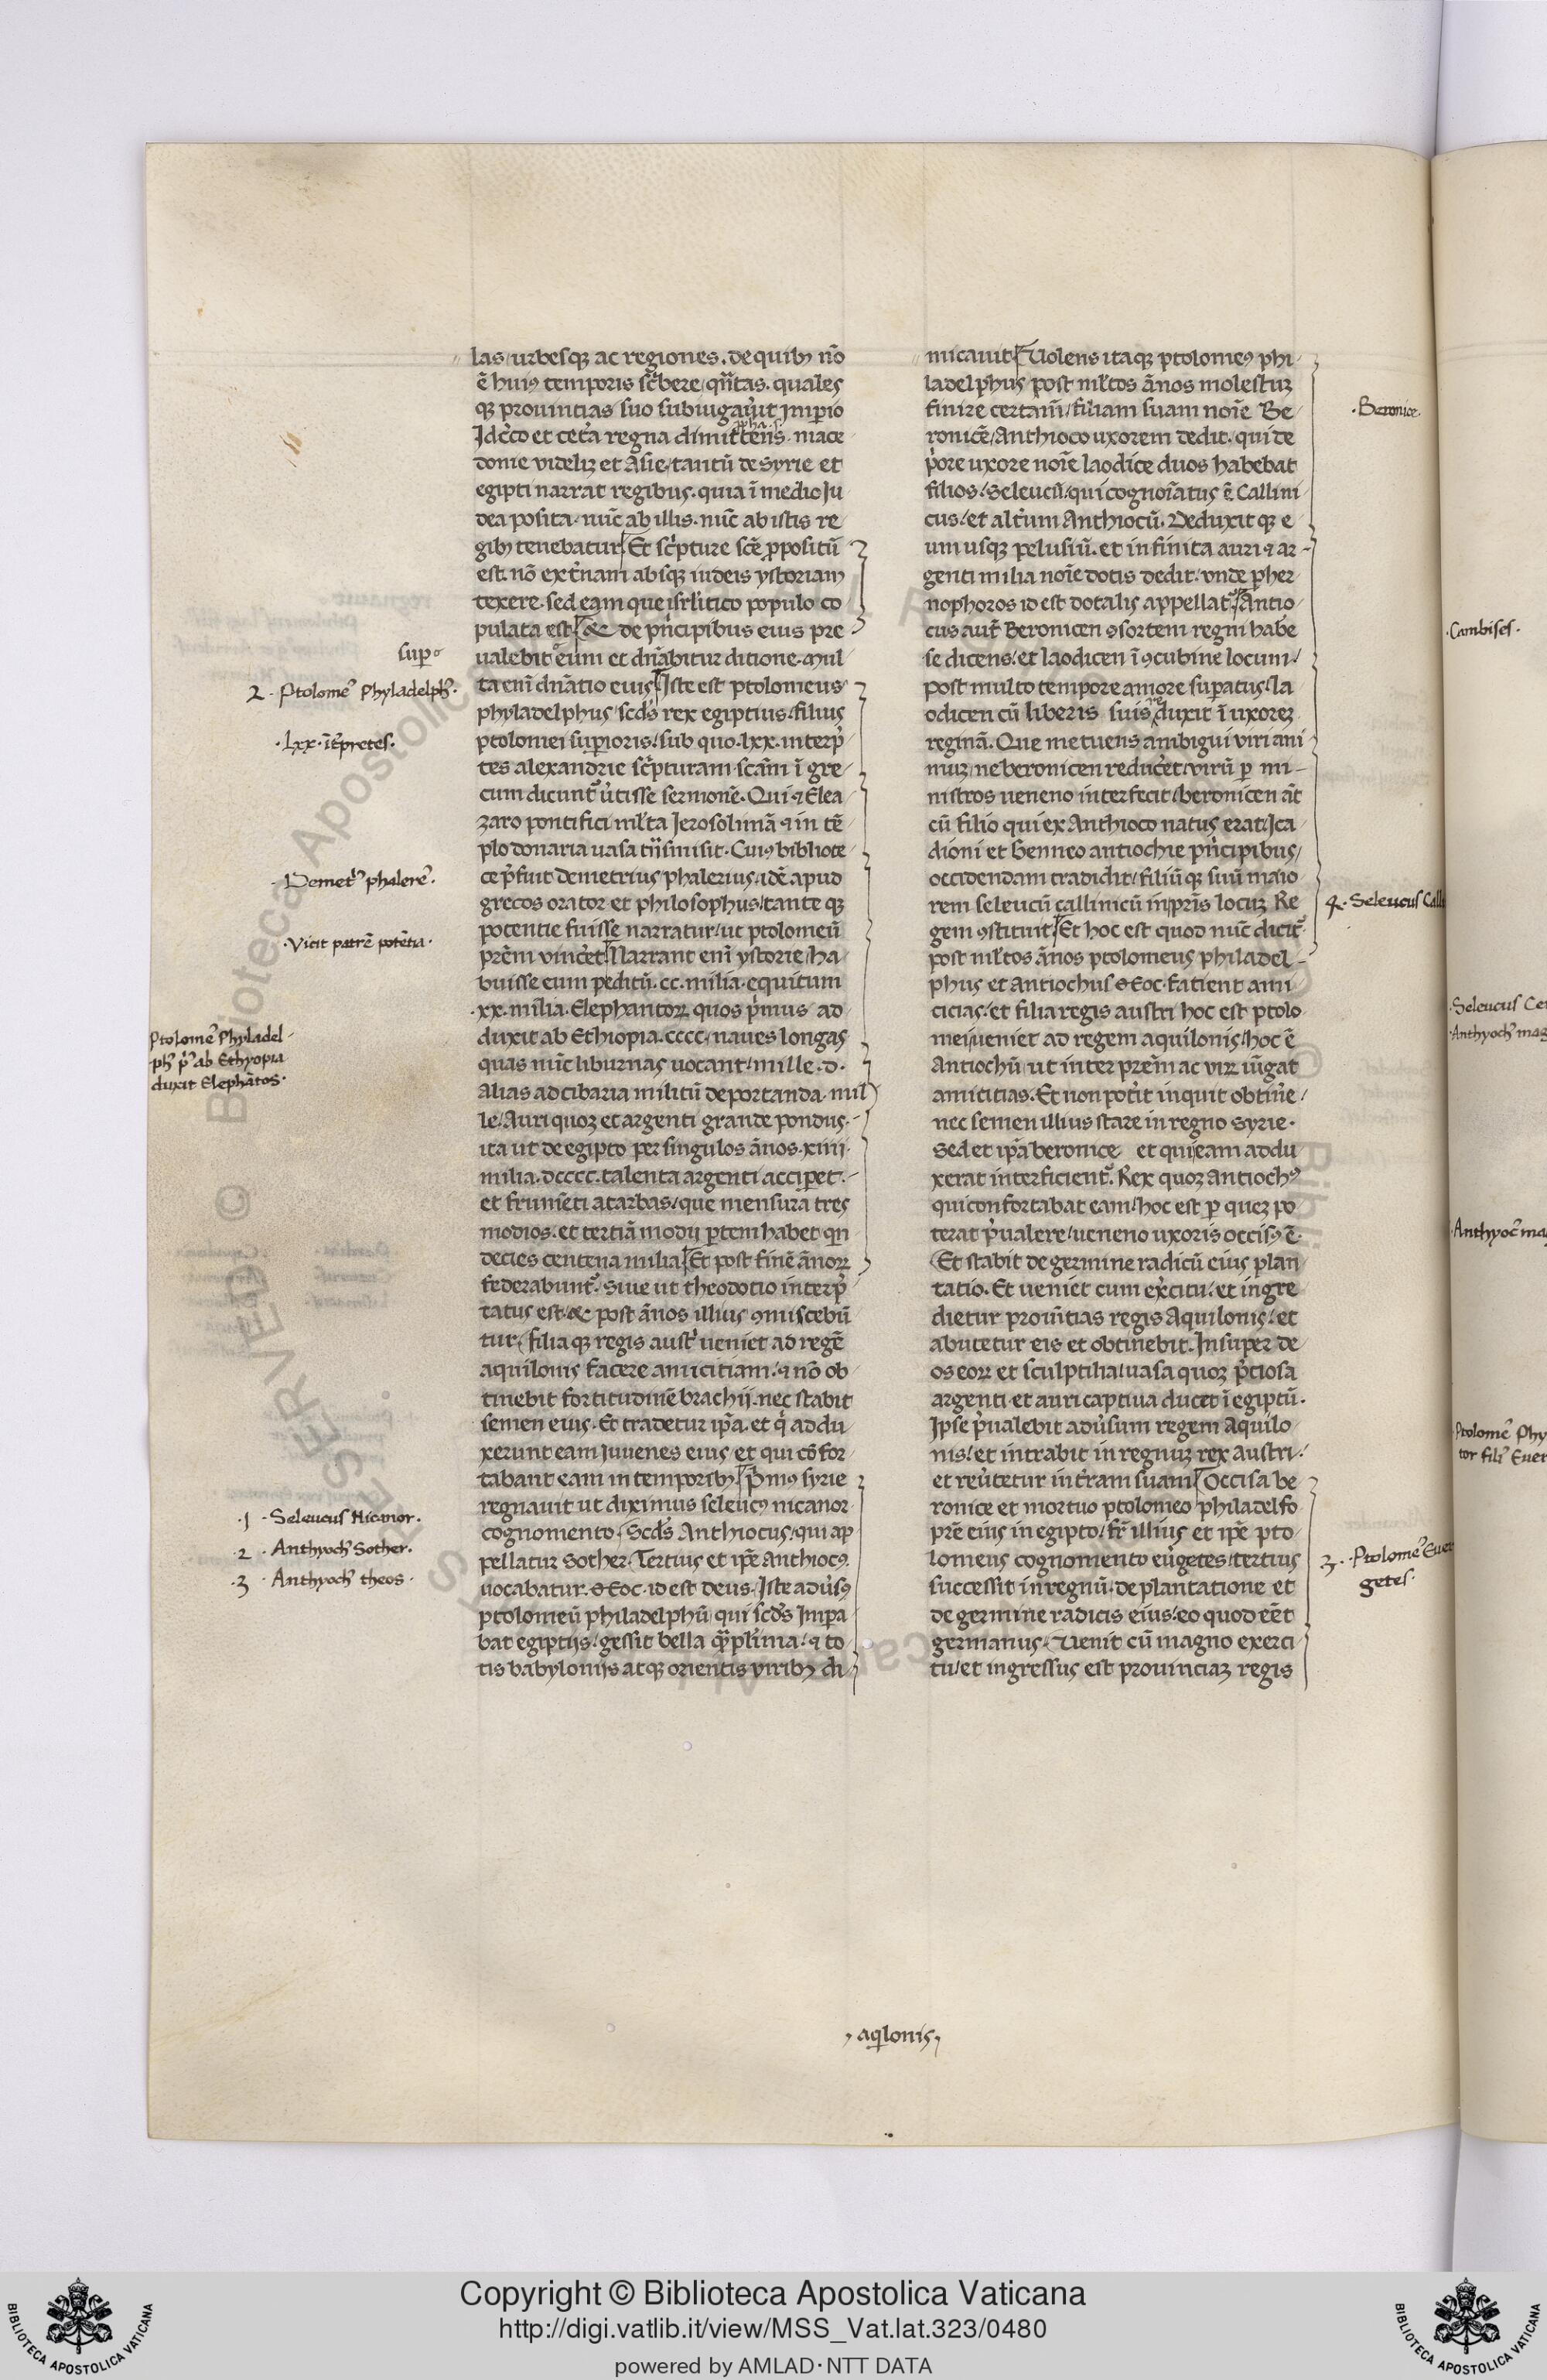 las urbesqꝫ ac regiones. de quibꝫ nō
ē huiꝯ temporis sc̄bere qn̄tas. quales
qꝫ prouintias suo subiugau̓ut Imꝑio
Idc̓co et cet̓a regna dimittens. mace
donie videlizet Asie. tantū de syrie et
egipti narrat regibus. quia ī medio Iu
dea posita. nūc ab illis. nūc ab istis re
gibꝫ tenebatur Et sc̓pture scē ꝓpositū
est. nō ext̓nam absqꝫ iudeis ystoriam
texere. sed eam que isrl̓itico populo co
pulata est & de pn̓cipibus eius pre
ualebit eum et dn̄abitur ditione. Mul
ta eni dn̄atio eius Iste est ptolomeus
phyladelphus scd̓s rex egiptius filius
ptolomei suꝑioris sub quo .lxx. interp̓
tes alexandrie sc̓pturam scām ī gre
cum dicunt᷑ u̓tisse sermonē. Qui ⁊ Elea
zaro pontifici ml̓ta Ierosolimā ⁊ in tē
plo donaria uasa tn̄smisit. Cuiꝯ bibliote
ce p̓fuit demetrius phalerius idē apud
grecos orator et philosophus tante qꝫ
potentie fuisse narratur ut ptolomeū
prēm vinc̓et Narrant eni ystorie ha
buisse eum peditū .cc. milia. equitum
.xx. milia. Elephantoꝝ quos p̓mus ad
duxit ab Ethiopia. cccc. naues longas
quas nūc liburnas uocant mille .d.
Alias ad cibaria militū deportanda. mil
le. Auri quoꝫ et argenti grande pondus.
ita ut de egipto per singulos ānos .xiiii.
milia. dcccc. talenta argenti acciꝑet.
et frumēti atarbas que mensura tres
modios. et tertiā modij ꝑtem habet qn
decies centena milia Et post finē ānoꝝ
federabunt᷑. siue ut theodotio interp̓
tatus est & post ānos illius ꝯmiscebū
tur filia qꝫ regis aust̓ ueniet ad regē
aquilonis facere amicitiam ⁊ nō ob
tinebit fortitudinē brachij. nec stabit
semen eius. Et tradetur ip̄a. et q̓ addu
xerunt eam Iuuenes eius et qui cōfor
tabant eam in temporibꝫ P̓miꝯ syrie
regnauit ut diximus seleucꝯ nicanor
cognomento. Scd̓s Anthiocus qui ap
pellatur Sother. Tertius et ip̄e Anthiocꝯ
uocabatur. id est deus. Iste adu̓sꝯ
ptolomeū philadelphū qui scd̓s Imꝑa
bat egiptijs gessit bella qᵃ̄pl̓ima ⁊ to
tis babylonijs atqꝫ orientis viribꝫ di
micauit Uolens itaqꝫ ptolomeꝯ phi
ladelphus post ml̓tos ānos molestuꝫ
finire certam̄ filiam suam noīe Be
ronicē Anthioco uxorem dedit. qui de
p̓ore uxore noīe laodice duos habebat
filios. Seleucū qui cognoīatus ē Callini
cus et alt̓um Anthiocū. Deduxit qꝫ e
um usqꝫ pelusiū. et infinita auri ⁊ ar
genti milia noīe dotis dedit. vnde pher
nophoros id est dotalis appellat᷑ Antio
cus aut̄ Beronicen ꝯsortem regni habe
se dicens et laodicen ī ꝯcubine locum
post multo tempore amore suꝑatus la
odicen cū liberis suis duxit ī uxoreꝫ
reginā. Que metuens ambigui viri ani
muꝫ ne beronicen reduc̓et virū ꝑ mi
nistros ueneno interfecit beronicen aūt
cū filio qui ex Anthioco natus erat Ica
dioni et Genneo antiochie pn̓cipibus
occidendam tradidit filiū qꝫ suū maio
rem seleucū callinicū in pr̄is locuꝫ Re
gem ꝯstituit Et hoc est quod nūc dicit᷑
post ml̓tos ānos ptolomeus philadel
phus et Antiochus Fatient ami
cicias et filia regis austri hoc est ptolo
mei ueniet ad regem aquilonis hoc ē
Antiochū ut inter prēm ac viꝝ iūgat
amicitias. Et non pot̓it inquit obtin̓e
nec semen illius stare in regno syrie.
Sed et ip̄a beronice et qui eam addu
xerat interficient᷑. Rex quoꝫ Antiochꝯ
qui confortabat eam hoc est ꝑ queꝫ po
terat p̓ualere ueneno uxoris occisꝯ ē.
Et stabit de germine radicū eius plan
tatio. Et ueniet cum ex̓citu et ingre
dietur prouītias regis Aquilonis et
abutetur eis et obtinebit. Insuper de
os eoꝝ et sculptilia uasa quoꝫ p̓ciosa
argenti et auri captiua ducet ī egiptū.
Ipse p̓ualebit adu̓sum regem Aquilo
nis et intrabit in regnuꝫ rex austri
et reu̓tetur in t̓ram suam Occisa be
ronice et mortuo ptolomeo philadelfo
prē eius in egipto fr̄ illius et ip̄e pto
lomeus cognomento eu̓getes tertius
successit in regnū de plantatione et
de germine radicis eius eo quod eēt
germanus. Uenit cū magno exerci
tu et ingressus est prouinciaꝫ regis
aqͥlonis
suꝑ
2. Ptolomeꝰ Phyladelphꝰ.
.lxx. īt̓pretes.
Demet̓ꝰ phalereꝰ.
.Vicit patrē potētia.
Ptolomeꝰ Phyladel
phꝰ p̓ꝰ ab Ethyopia
duxit Elephātos.
.1. Seleucus Nicanor.
.2. Anthyochꝰ Sother.
.3. Anthyochꝰ theos.
.Beronice.
4. Seleucus Call
3. Ptolomeꝰ Euer
getes.
.Cambises.
.Seleucus Cer
.Anthyochꝰ mag
Anthyocꝰ mag
Ptolomeꝰ Phy
tor filiꝰ Euer
Copyright © Biblioteca Apostolica Vaticana
http://digi.vatlib.it/view/MSS_Vat.lat.323/0480
powered by AMLAD·NTT DATA
BIBLIOTECA APOSTOLICA VATICANA
BIBLIOTECA APOSTOLICA VATICANA